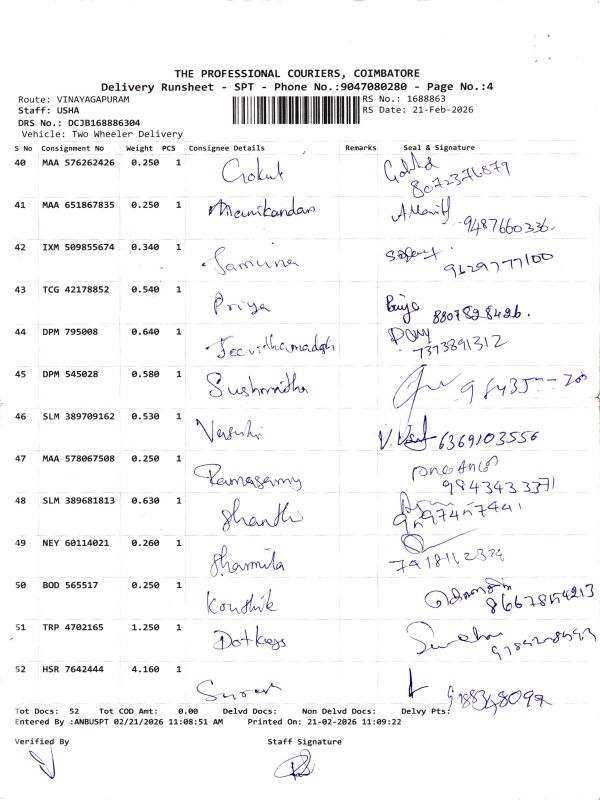 THE PROFESSIONAL COURIERS, COIMBATORE
Delivery Runsheet - SPT - Phone No.:9047080280 - Page No.:4
Route: VINAYAGAPURAM RS No.: 1688863
Staff: USHA RS Date: 21-Feb-2026
DRS No.: DCJB168886304
Vehicle: Two Wheeler Delivery
S No Consignment No Weight PCS Consignee Details Remarks Seal & Signature
40 MAA 576262426 0.250 1 Gokul
8072376879
41 MAA 651867835 0.250 1 Manikandan
9487660336.
42 IXM 509855674 0.340 1 Jamuna
9629777100
43 TCG 42178852 0.540 1 Priya Priya
8807828426.
44 DPM 795008 0.640 1
7373891312
45 DPM 545028 0.580 1 Sushmitha
46 SLM 389709162 0.530 1
6369103556
47 MAA 578067508 0.250 1 Ramasamy
9843433371
48 SLM 389681813 0.630 1 Shanthi
49 NEY 60114021 0.260 1 Sharmila
50 BOD 565517 0.250 1 Koushik
51 TRP 4702165 1.250 1
52 HSR 7642444 4.160 1
Tot Docs: 52 Tot COD Amt: 0.00 Delvd Docs: Non Delvd Docs: Delvy Pts:
Entered By :ANBUSPT 02/21/2026 11:08:51 AM Printed On: 21-02-2026 11:09:22
Verified By Staff Signature